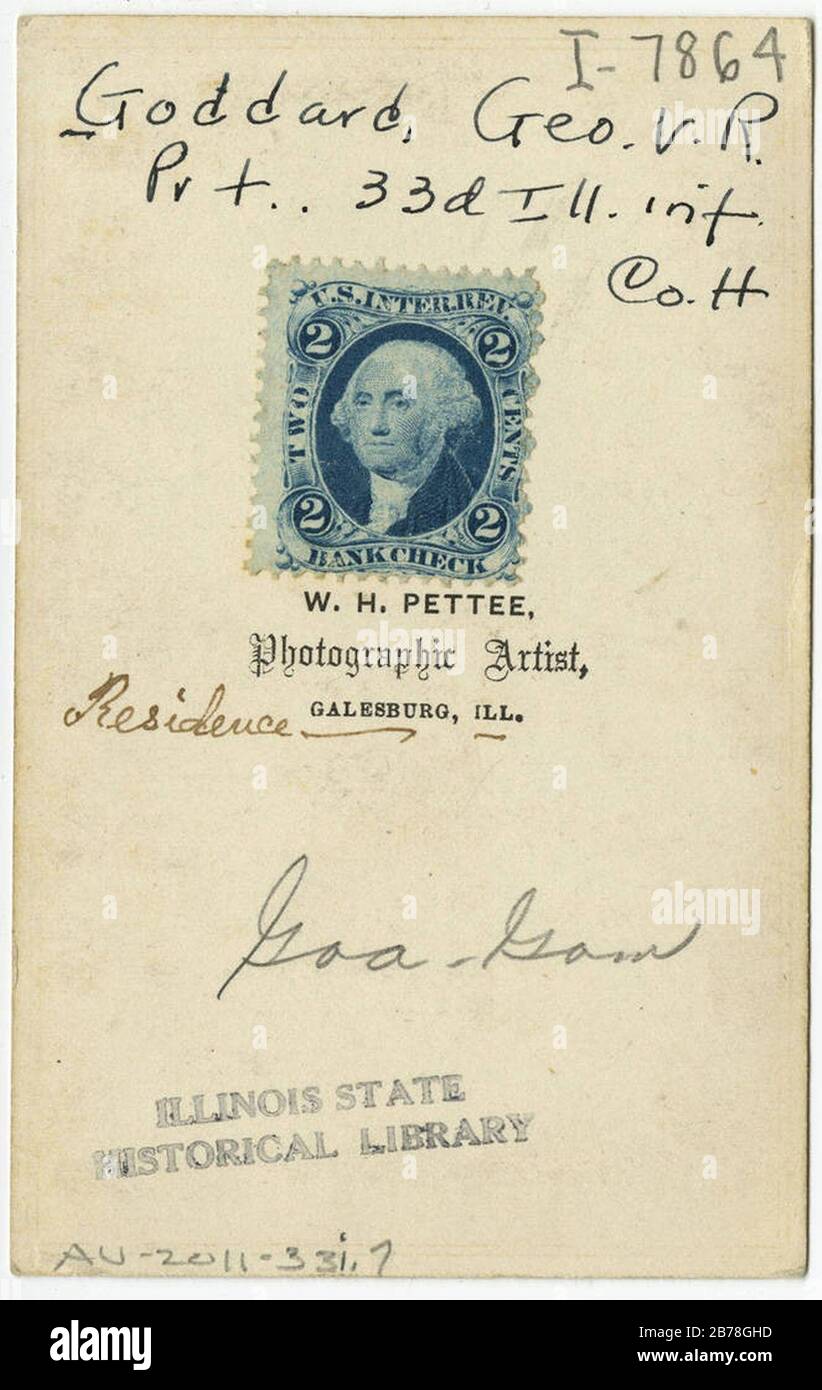 I-7864
Goddard, Geo. V. R.
Prt.. 33d Ill. inf.
Co. H
U.S. INTER. REV.
2 2
TWO CENTS
2 2
BANK CHECK
W. H. PETTEE,
Photographic Artist,
GALESBURG, ILL.
Residence
Goa - Gom
ILLINOIS STATE
HISTORICAL LIBRARY
AV-2011-33i.7
alamy
alamy
alamy
alamy
Image ID: 2B78GHD
www.alamy.com